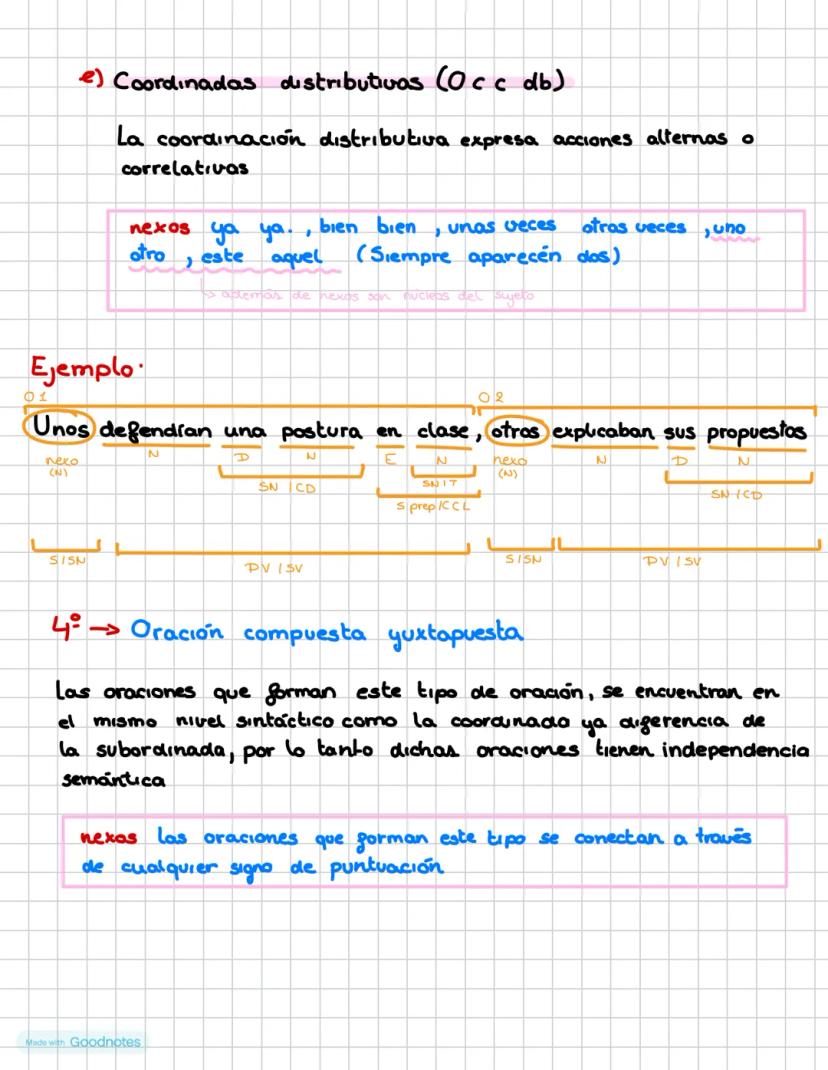 e) Coordinadas distributivas (O c c db)
La coordinación distributiva expresa acciones alternas o
correlativas
nexos ya ya. , bien bien , unas veces otras veces , uno
otro , este aquel (Siempre aparecén dos)
↳ además de nexos son núcleos del sujeto
Ejemplo.
O1 O2
Unos defendían una postura en clase, otros explicaban sus propuestas
nexo N D N E N nexo N D N
(N) (N)
SN / CD SN / T SN / CD
S prep / CCL
S / SN PV / SV S / SN PV / SV
4º → Oración compuesta yuxtapuesta
Las oraciones que forman este tipo de oración, se encuentran en
el mismo nivel sintáctico como la coordinada y a diferencia de
la subordinada, por lo tanto dichas oraciones tienen independencia
semántica
nexos las oraciones que forman este tipo se conectan a través
de cualquier signo de puntuación
Made with Goodnotes